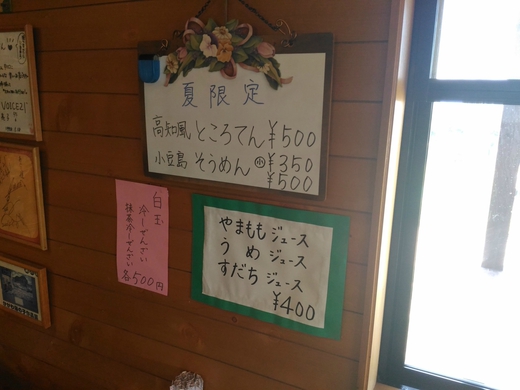 夏限定
高知風ところてん ¥500
小豆島そうめん ㊥ ¥350
¥500
白玉
冷しぜんざい
抹茶冷しぜんざい
各500円
やまももジュース
うめジュース
すだちジュース
¥400
VOICE21